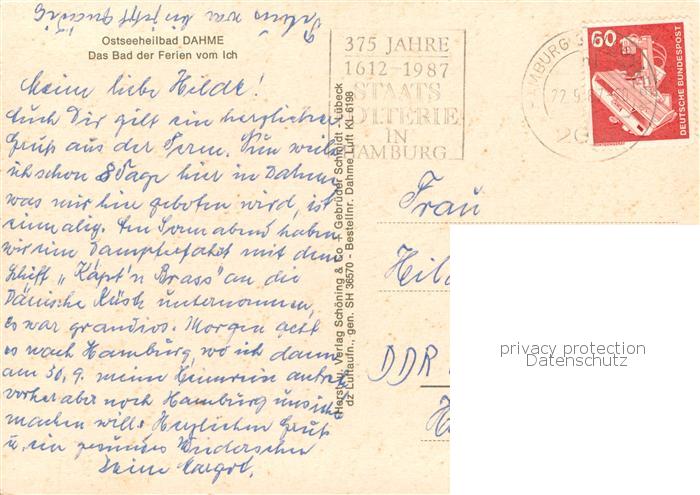 Ostseeheilbad DAHME
Das Bad der Ferien vom Ich
Meine liebe Hilde!
Auch Dir gilt ein herzlicher
Gruß aus der Ferne. Nun weile
ich schon 8 Tage hier in Dahme,
was mir hier geboten wird, ist
einmalig. Am Sonnabend haben
wir eine Dampferfahrt mit dem
Schiff „Käpt'n Brass" an die
Dänische Küste unternommen,
es war grandios. Morgen geht
es nach Hamburg, wo ich dann
am 30.9. meine Heimreise antrete
vorher aber noch Hamburg unsicher
machen will. Herzlichen Gruß
u. ein gesundes Wiedersehen
Deine Margot.
Herstell. Verlag Schöning & Co + Gebrüder Schmidt - Lübeck
dz Luftaufn., gen. SH 36570 - Bestellnr. Dahme Luft KU 6198
375 JAHRE
1612-1987
STAATS
LOTTERIE
IN
HAMBURG
HAMBURG
22.9.87
20
60
DEUTSCHE BUNDESPOST
Frau
Hild
DDR
privacy protection
Datenschutz